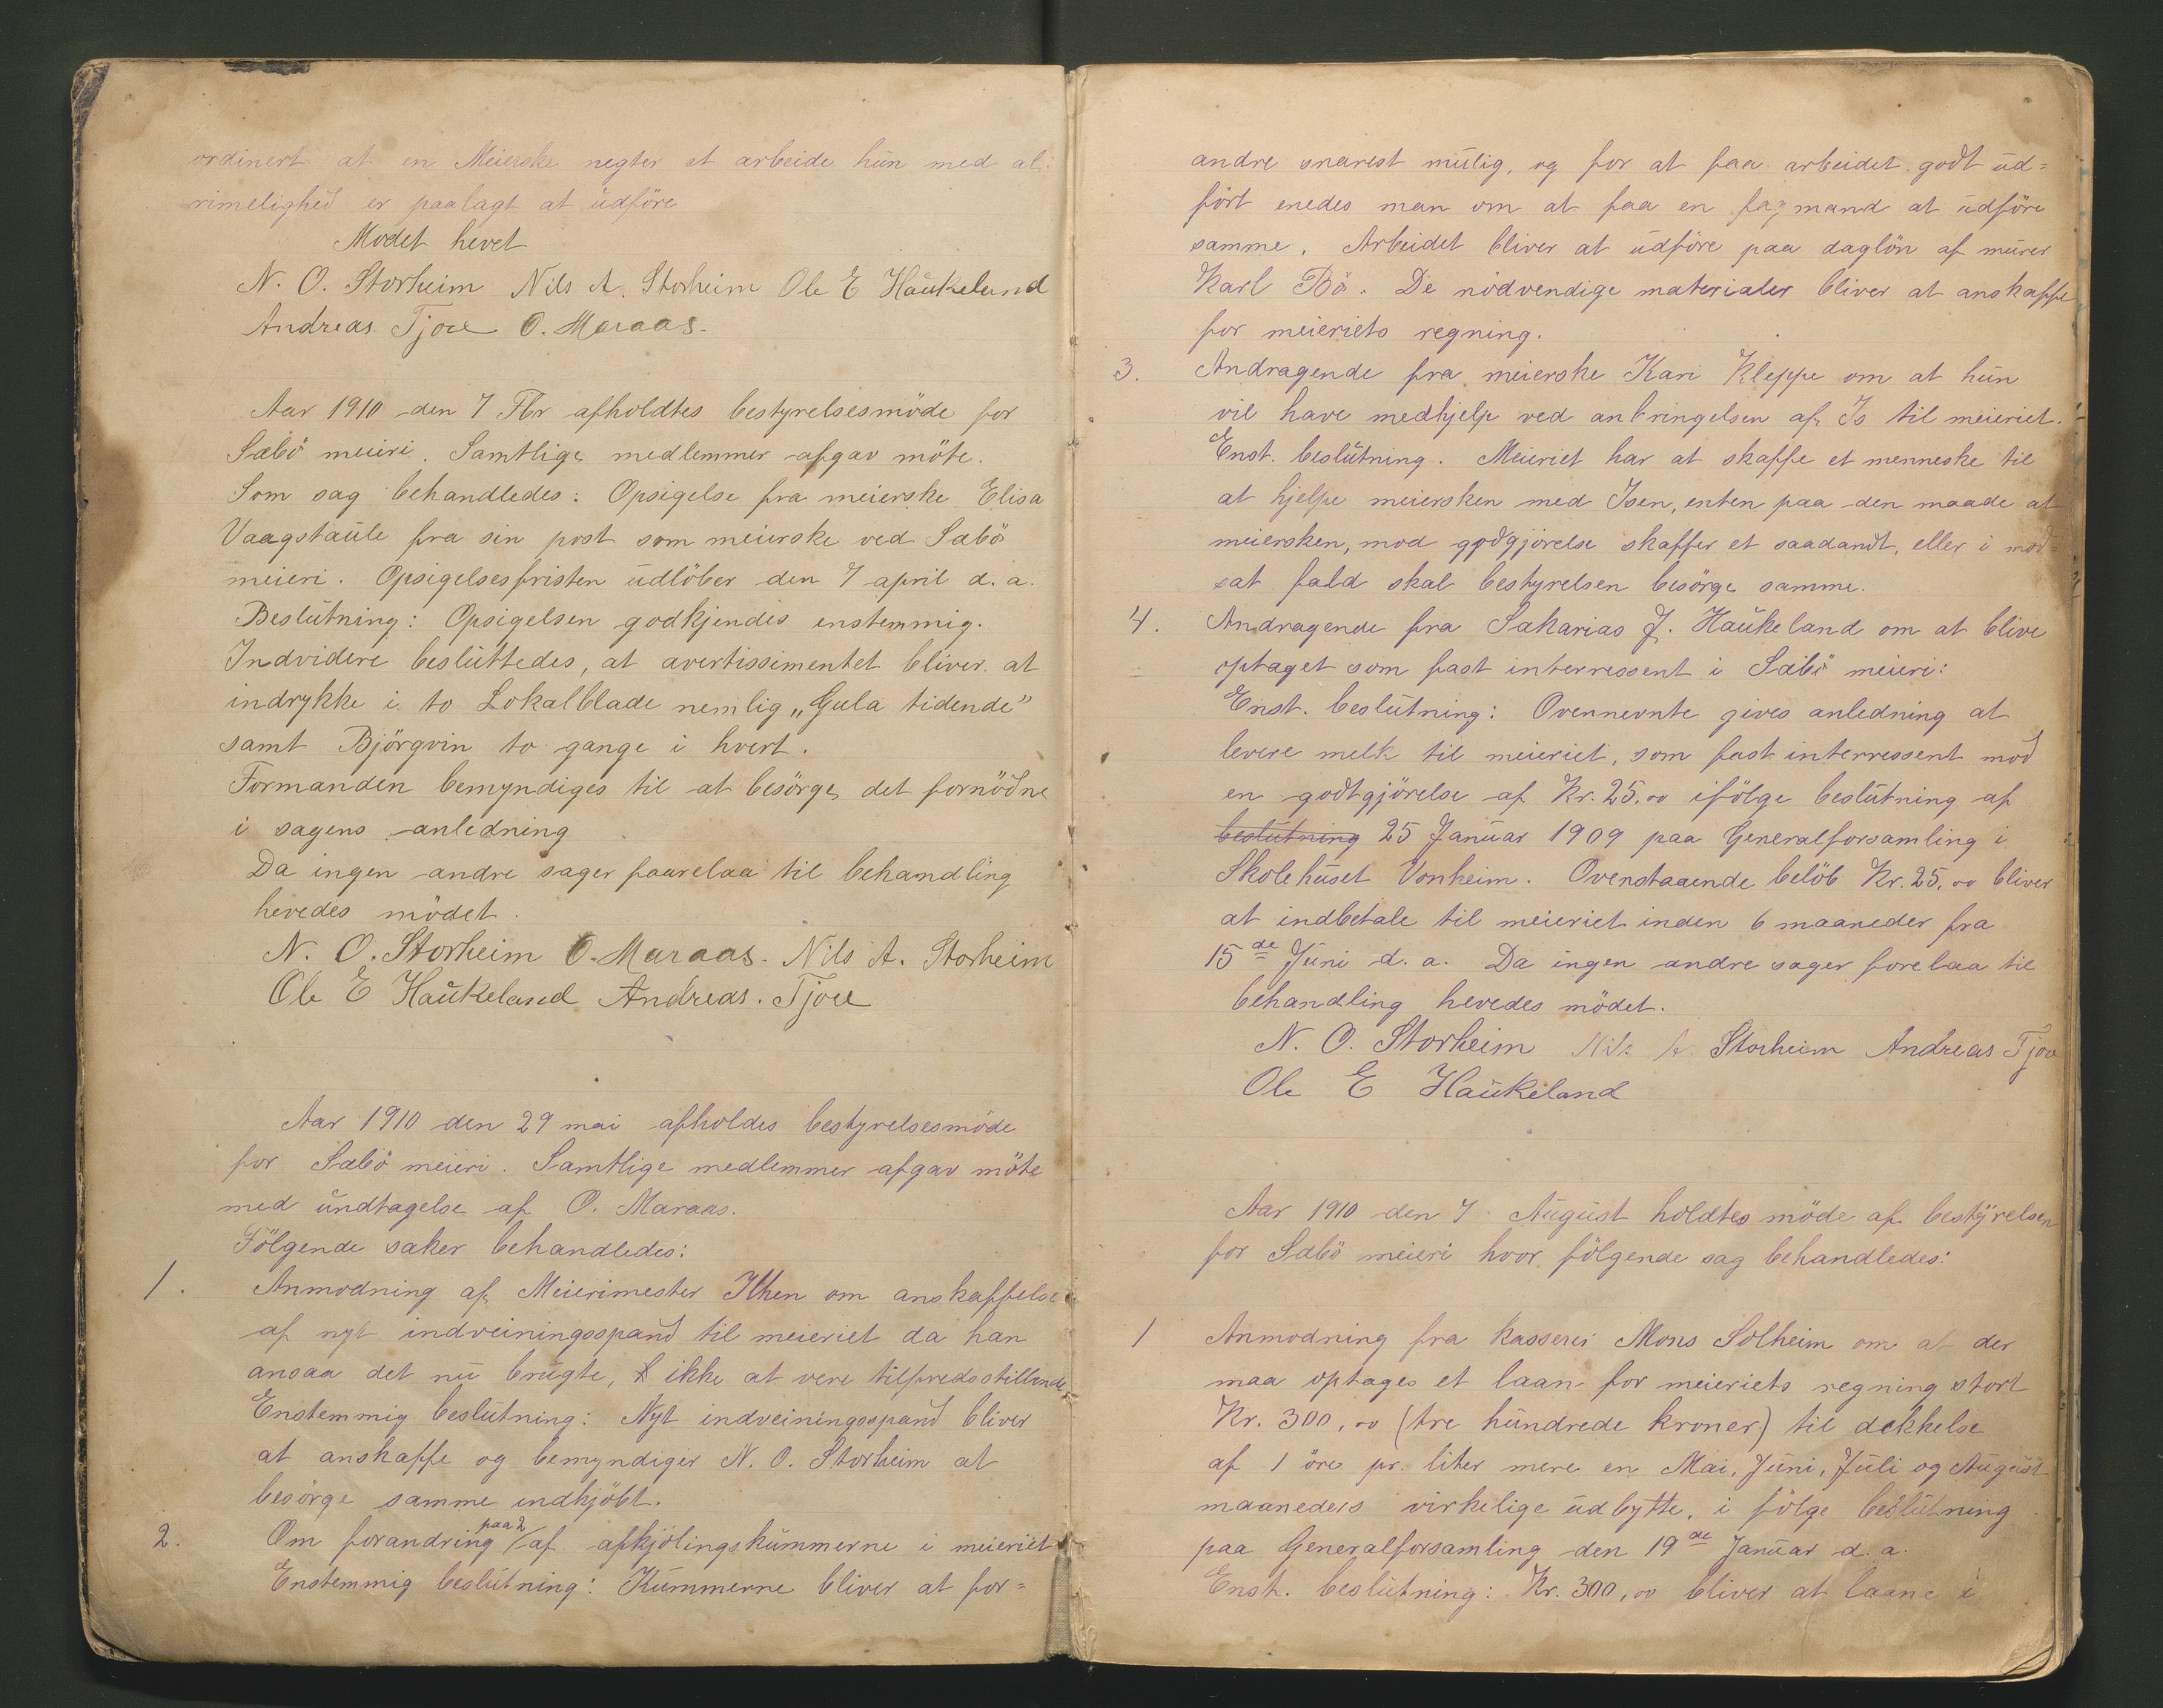 ordinert at en Meierske negter et arbeide hun med al
rimelighed er paalagt at udföre
Mödet hevet
N. O. Storheim Nils A. Storheim Ole E Haukeland
Andreas Tjore O. Maraas.
Aar 1910 den 7 Fbr afholdtes bestyrelsesmöde for
Sæbö meieri. Samtlige medlemmer afgav möte.
Som sag behandledes: Opsigelse fra meierske Elisa
Vaagstaule fra sin post som meierske ved Sæbö
meieri. Opsigelsesfristen udlöber den 7 april d. a.
Beslutning: Opsigelsen godkjendes enstemmig.
Indvidere besluttedes, at avertissimentet bliver at
indrykke i to Lokalblade nemlig „Gula tidende"
samt Björgvin to gange i hvert.
Formanden bemyndiges til at besörge det fornödne
i sagens anledning
Da ingen andre sager faarelaa til behandling
hevedes mödet.
N. O. Storheim O. Maraas. Nils A. Storheim
Ole E Haukeland Andreas. Tjore
Aar 1910 den 29 mai afholdes bestyrelsesmöde
for Sæbö meieri. Samtlige medlemmer afgav möte
med undtagelse af O. Maraas.
Fölgende saker behandledes:
1. Anmodning af Meierimester Ithen om anskaffelse
af nyt indveiningsspand til meieriet da han
ansaa det nu brugte, ikke at vere tilfredsstillende
Enstemmig beslutning: Nyt indveiningsspand bliver
at anskaffe og bemyndiger N. O. Storheim at
besörge samme indkjöbt.
2. Om forandring paa 2 af afkjölingskummerne i meieriet
Enstemmig beslutning: Kummerne bliver at for=
andre snarest mulig, og for at faa arbeidet godt ud=
fört enedes man om at faa en fagmand at udföre
samme. Arbeidet bliver at udföre paa daglön af murer
Karl Bö. De nödvendige materialer bliver at anskaffe
for meieriets regning.
3. Andragende fra meierske Kari Kleppe om at hun
vil have medhjelp ved anbringelsen af Is til meieriet.
Enst. beslutning. Meieriet har at skaffe et menneske til
at hjelpe meiersken med Isen, enten paa den maade at
meiersken, mod godgjörelse skaffer et saadandt, eller i mod=
sat fald skal bestyrelsen besörge samme.
4. Andragende fra Sakarias J. Haukeland om at blive
optaget som fast interressent i Sæbö meieri:
Enst. beslutning: Ovennevnte gives anledning at
levere melk til meieriet, som fast interressent mod
en godtgjörelse af Kr. 25,00 ifölge beslutning af
beslutning 25 Januar 1909 paa Generalforsamling i
Skolehuset Vonheim. Ovenstaaende belöb Kr. 25,00 bliver
at indbetale til meieriet inden 6 maaneder fra
15de Juni d. a. Da ingen andre sager forelaa til
behandling hevedes mödet.
N. O. Storheim Nils A. Storheim Andreas Tjore
Ole E Haukeland
Aar 1910 den 7 August holdtes möde af bestyrelsen
for Sæbö meieri hvor fölgende sag behandledes:
1 Anmodning fra kasserer Mons Solheim om at der
maa optages et laan for meieriets regning stort
Kr. 300,00 (tre hundrede kroner) til dekkelse
af 1 öre pr. liter mere en Mai, Juni, Juli og August
maaneders virkelige udbytte, i fölge beslutning
paa Generalforsamling den 19de Januar d. a.
Enst. beslutning: Kr. 300,00 bliver at laane i